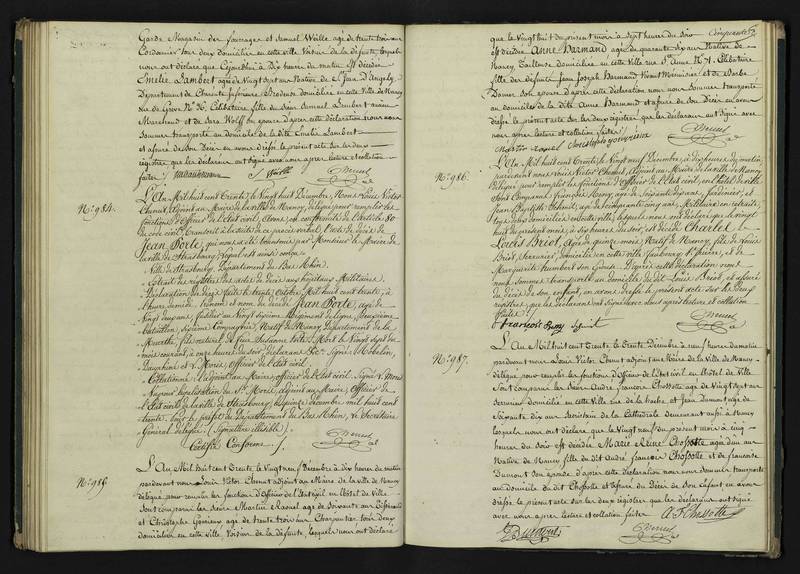 Garde Magasin des fourrages et Samuel Weille agé de trente trois ans
Cordonnier tous deux domiciliés en cette ville Voisins de la défunte, lesquels
nous ont déclaré que Cejourdhui à dix heures du matin est décédée
Emélie Lambert agée de Vingt sept ans Native de St Jean d'Angely,
Département de Charente Inférieure Brodeuse domiciliée en cette Ville de Nancy
rue de Grève No 26, Célibataire, fille de Samuel Lambert
Marchand et de Sara Wolff son épouse d'après cette déclaration nous nous
sommes transporté au domicile de la dite Emélie Lambert
et assuré de son Décès en avons dréssé le présent acte sur les deux
régistres que les déclarants ont signé avec nous après lecture et collation
faites
S Weille
No 984.
L'An Mil huit cent Trente, le Vingt huit Décembre, Nous Louis Victor
Chenut, adjoint au Maire de la ville de Nancy, délégué pour remplir les
fonctions d'Officier de l'Etat civil, Avons, en conformité de l'article 80
du code civil, transcrit à la suite du procès verbal, l'acte de décès de
Jean Porte, qui nous a été transmis par Monsieur le Maire de
la ville de Strasbourg, lequel est ainsi conçu
Ville de Strasbourg, Département du Bas Rhin.
Extrait des registres des actes de décès aux hopitaux Militaires.
Déclaration de décès faite le trente Octobre Mil huit cent trente, à
l'heure de midi. Prénom et nom du décédé Jean Porte, agé de
Vingt deux ans, fusilier au Vingt sixième Régiment de ligne, deuxième
bataillon, sixième Compagnie, Natif de Nancy, Département de la
Meurthe, fils naturel de feue Suzanne Porte. Mort le Vingt sept du
mois courant, à onze heures du soir, déclarants &c. Signé Mobelin,
Dauphiné et V. Morie, Officier de l'Etat civil.
Collationné: l'adjoint au Maire, officier de l'Etat civil. Signé V. Morie
Vu pour légalisation de S. Morie, adjoint au Maire, Officier de
l'Etat civil de la ville de Strasbourg, le quinze décembre mil huit cent
trente, Pour le préfet du Département du Bas Rhin, le Secrétaire
Général délégué (Signature illisible).
Certifié Conforme
No 985
L'An Mil huit cent Trente, le Vingt neuf Décembre à dix heures du matin
pardevant nous Louis Victor Chenut adjoint au Maire de la Ville de Nancy
délégué pour remplir les fonctions d'Officier de l'Etat civil en l'hôtel de Ville
Sont comparus les Sieurs Martin Raouel agé de Soixante ans
et Christophe agé de trente trois ans Charpentier tous Deux
domiciliés en cette ville Voisins de la défunte, lesquels nous ont déclaré
que le Vingt huit du présent mois à sept heures du Soir
est décédée Anne Barmand agée de quarante six ans Native de
Nancy, Tailleuse domiciliée en cette Ville rue St Anne No 71. Célibataire
fille des défunts Jean Joseph Barmand Vivant Menuisier et de Barbe
Damer son épouse d'après cette déclaration nous nous sommes transporté
au domicile de la dite Anne Barmand et assuré de son Décès en avons
dréssé le présent acte sur les deux régistres que les déclarants ont signé avec
nous après lecture et collation faites
No 986.
L'An Mil huit cent Trente, le Vingt neuf Décembre, à dix heures du matin,
pardevant nous Louis Victor Chenut, adjoint au Maire de la ville de Nancy
délégué pour remplir les fonctions d'Officier de l'Etat civil, en l'hôtel de ville
Sont Comparus François Remy, agé de Soixante dix ans, Jardinier, et
Jean Baptiste Schmit, agé de soixante cinq ans, Militaire en retraite,
tous deux domiciliés en cette ville, lesquels nous ont déclaré que le vingt
huit du présent mois, à dix heures du soir, est décédé Charles
Louis Briot, agé de quinze mois, Natif de Nancy, fils de Louis
Briot, Serrurier, domicilié en cette ville faubourg St Pierre, et de
Marguerite Humbert son épouse. D'après cette déclaration nous
nous sommes transporté au domicile du dit Louis Briot, et assuré
du décès de son enfant, en avons dressé le présent acte sur les deux
registres, que les déclarants ont signé avec nous après lecture et collation
faites.
François Remy Schmit
No 987.
L'An Mil huit cent Trente le Trente Décembre à neuf heures du matin
pardevant nous Louis Victor Chenut adjoint au Maire de la Ville de Nancy
délégué pour remplir les fonctions d'Officier de l'Etat civil en l'hôtel de Ville
Sont Comparus les Sieurs André François Chossotte agé de Vingt sept ans
Serrurier domicilié en cette Ville rue de la hache et Jean Dumont agé de
Soixante dix ans Sacristain de la Cathédrale demeurant aussi à Nancy
lesquels nous ont déclaré que le Vingt neuf du présent mois à cinq
heures du Soir est décédée Marie Reine Chossotte agée d'un an
Native de Nancy fille du dit André François Chossotte et de françoise
Dumont son épouse d'après cette déclaration nous nous sommes transporté
au domicile du dit Chossotte et assuré du Décès de son Enfant en avons
dréssé le présent acte sur les deux régistres que les déclarants ont signé
avec nous après lecture et collation faites A F Chossotte
J Dumont